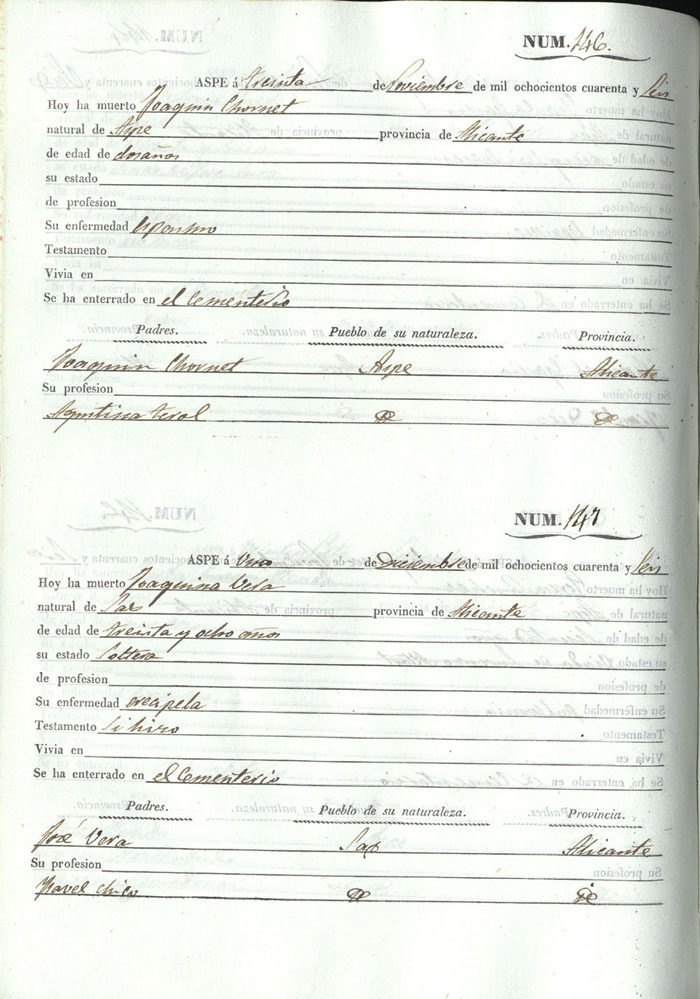 NUM. 146.
ASPE á treinta de Noviembre de mil ochocientos cuarenta y seis
Hoy ha muerto Joaquin Chornet
natural de Aspe provincia de Alicante
de edad de dos años
su estado
de profesion
Su enfermedad
Testamento
Vivia en
Se ha enterrado en el Cementerio
Padres. Pueblo de su naturaleza. Provincia.
Joaquin Chornet Aspe Alicante
Su profesion
Agustina Terol
NUM. 147
ASPE á Uno de Diciembre de mil ochocientos cuarenta y seis
Hoy ha muerto Joaquina Vera
natural de Sax provincia de Alicante
de edad de treinta y ocho años
su estado Soltera
de profesion
Su enfermedad erecipela
Testamento Si hizo
Vivia en
Se ha enterrado en el Cementerio
Padres. Pueblo de su naturaleza. Provincia.
José Vera Sax Alicante
Su profesion
Chico